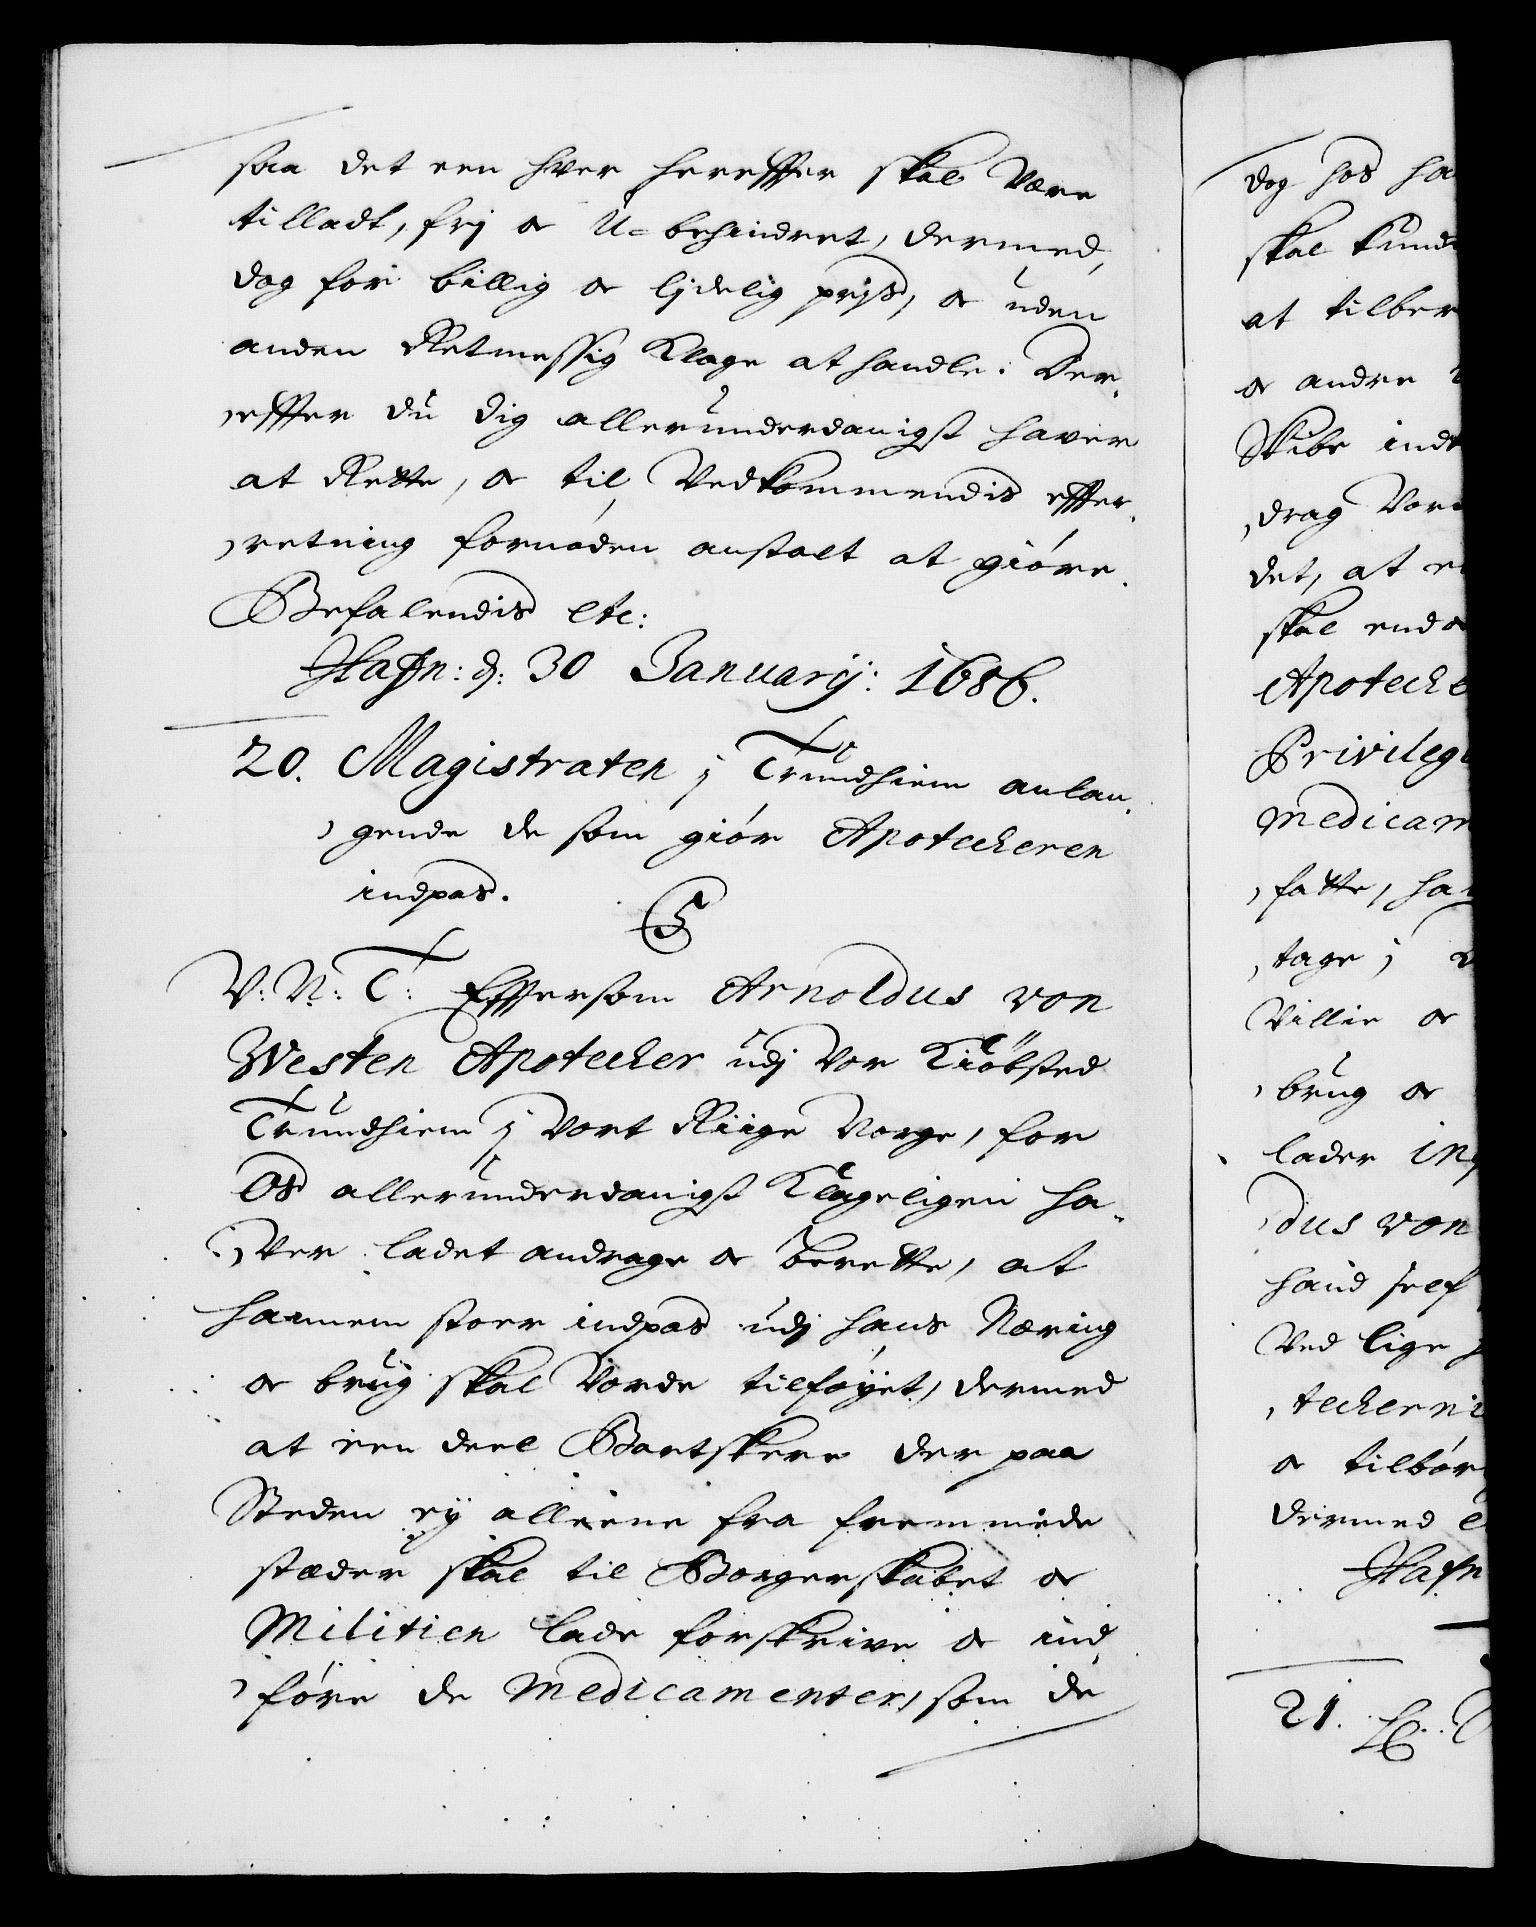 saa det een hver hereffter skal være
tilladt, frj oc U-behindret, dermed,
dog for billig oc ljdelig prjs, oc uden
anden Retmessig Klage at handle. Der-
effter du dig allerunderdanigst haver
at Rette, oc til Vedkommendis effter-
retning fornøden anstalt at giøre.
Befalendis etc:
Hafn: d: 30 Januarij: 1686.
20. Magistraten j Trundhiem anlan-
gende de som giør Apoteckeren
indpas.
C5
V: N: T: Efftersom Arnoldus von
Westen Apotecker udj vor Kiöbsted
Trundhiem j vort Riige Norge, for
Os allerunderdanigst Klageligen ha-
ver ladet andrage oc berette, at
hannem stoer indpas udj hans Næring
oc brug skal vorde tilføyet, dermed
at een deel Bartskere der paa
Steden ey alleene fra fremmede
stæder skal til Borgerskabet oc
Militien lade forskrive oc ind
føre de Medicamenter, som de
dog hos ha
skal kund
at tilber
oc andre
Skibe ind
drag Vor
det, at
skal end
Apoteck
Privileg
medicam
fatte, ha
tage j
Villie oc
brug oc
lader in
dus von
haud self
Ved lige
teckerni
oc tilbør
dermed
Hafn
21.